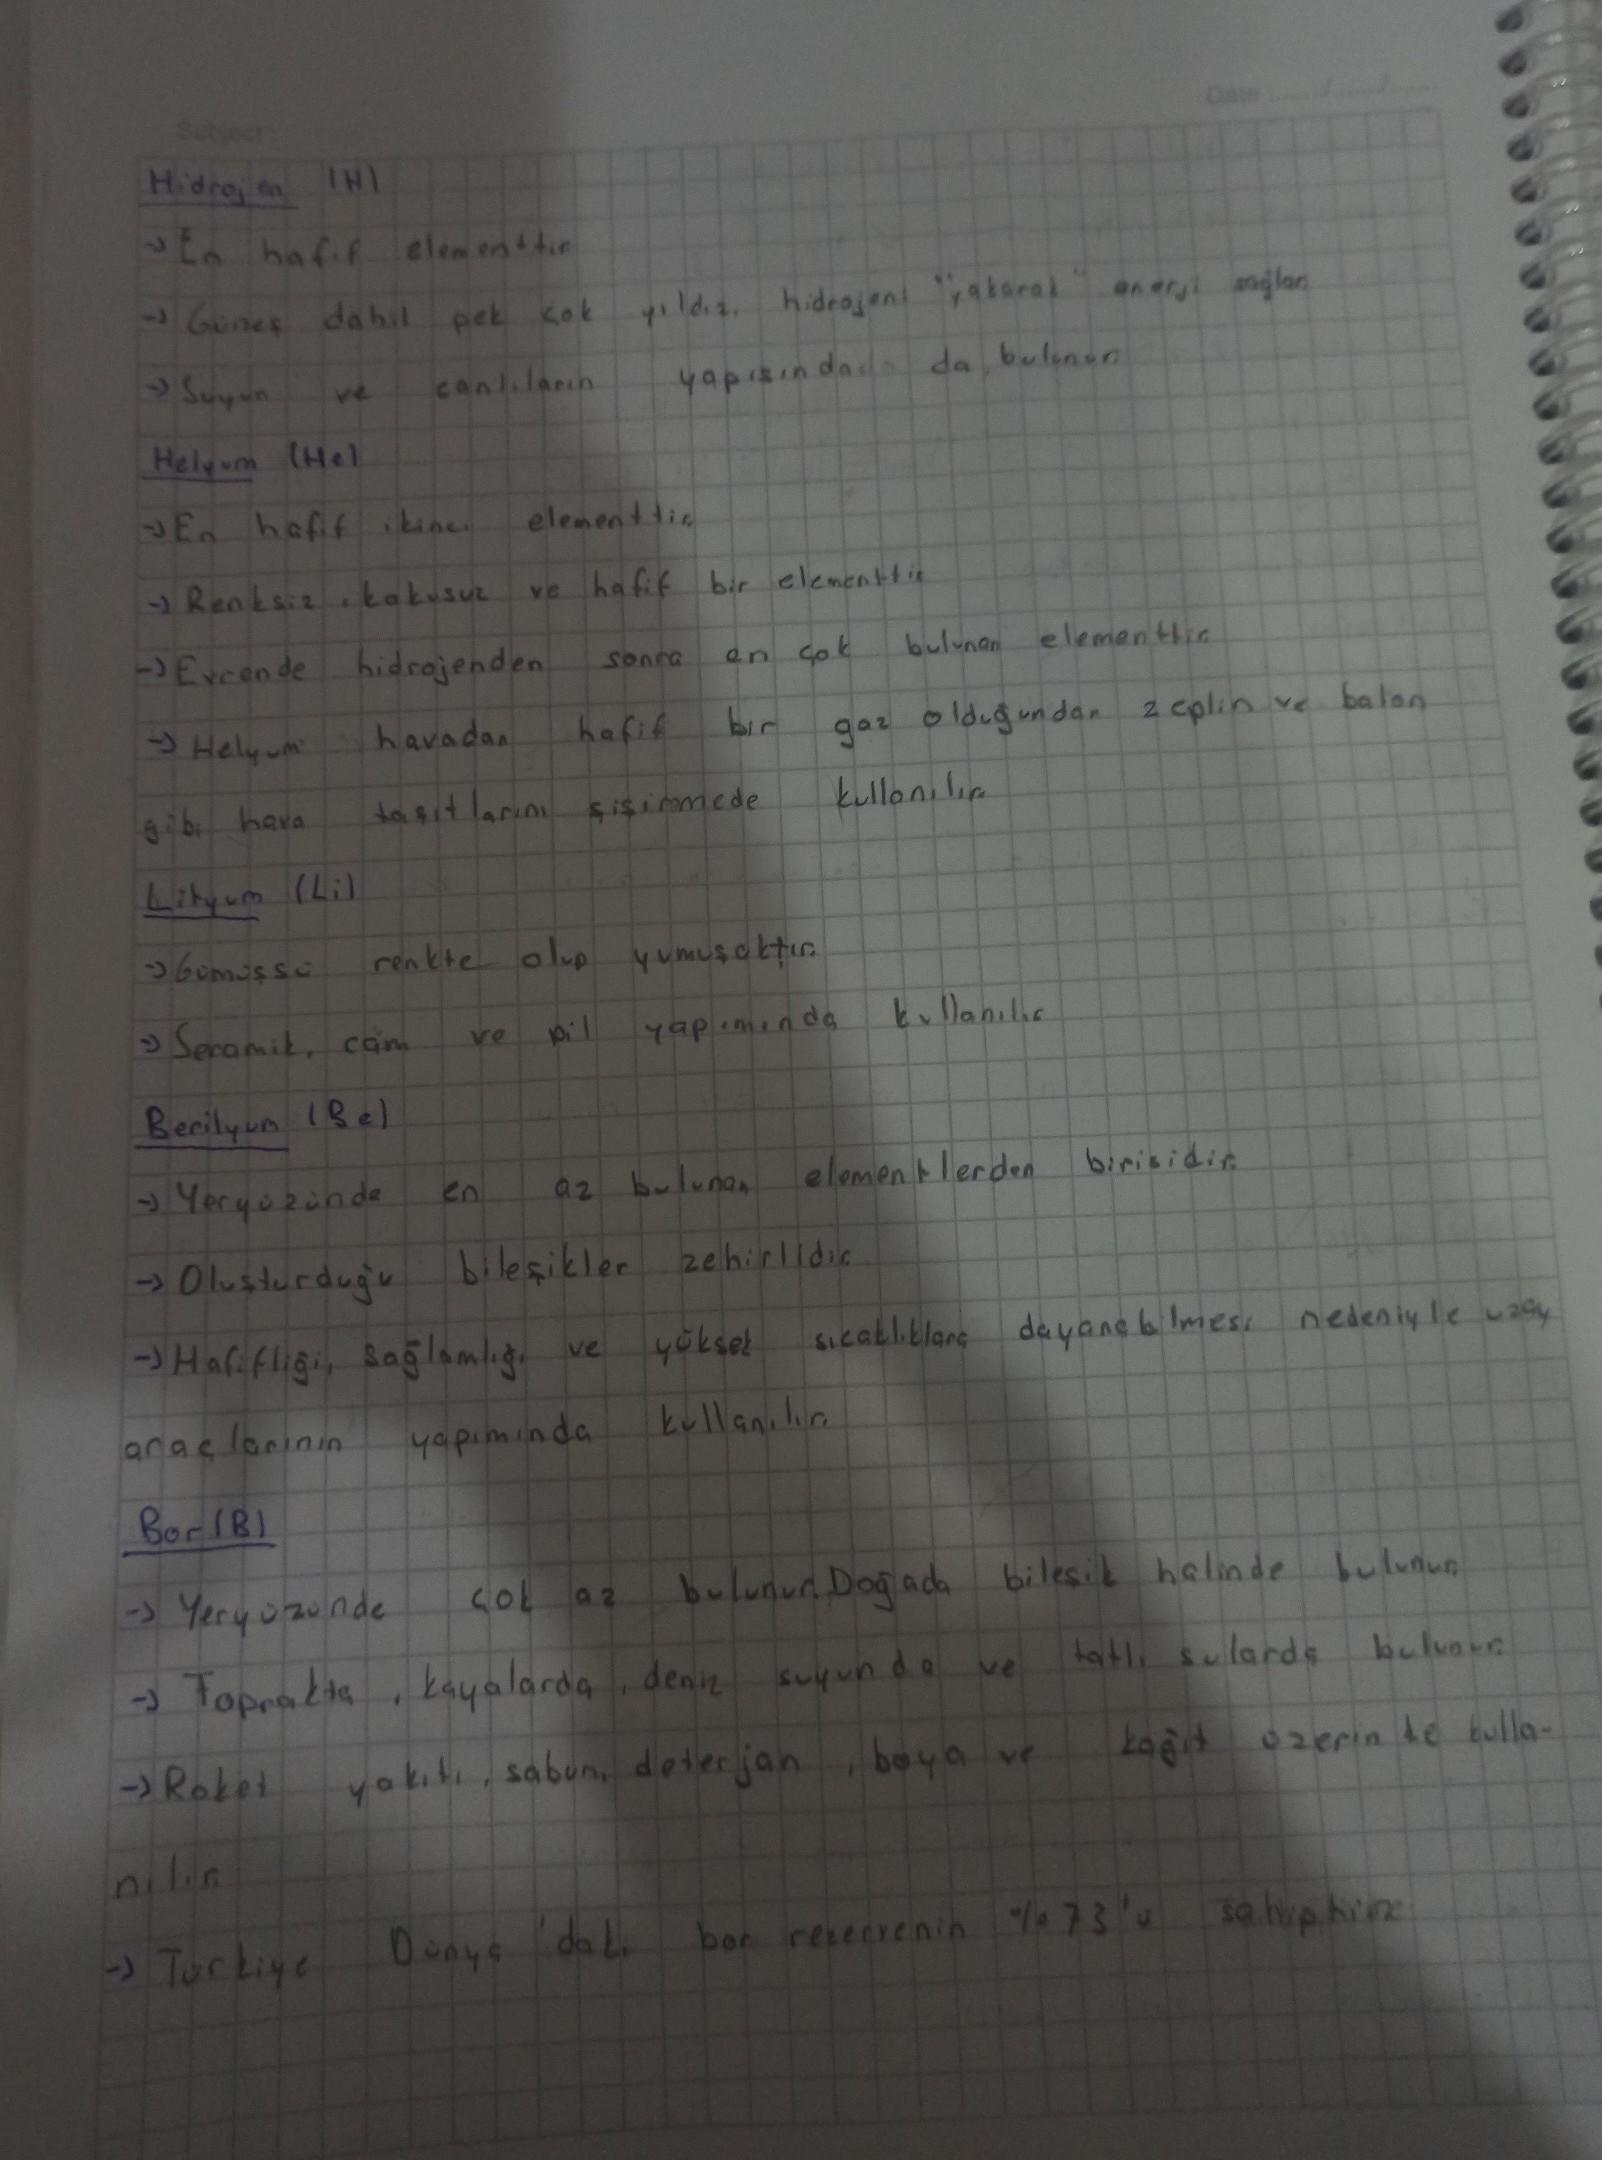 Subject
Date
Hidrojen (H)
→ En hafif elementtir
→ Güneş dahil pek çok yıldız, hidrojeni "yakarak" enerji sağlar
→ Suyun ve canlıların yapısında da bulunur
Helyum (He)
→ En hafif ikinci elementtir
→ Renksiz, kokusuz ve hafif bir elementtir
→ Evrende hidrojenden sonra en çok bulunan elementtir
→ Helyum havadan hafif bir gaz olduğundan zeplin ve balon
gibi hava taşıtlarını şişirmede kullanılır.
Lityum (Li)
→ Gümüşsü renkte olup yumuşaktır.
→ Seramik, cam ve pil yapımında kullanılır
Berilyum (Be)
→ Yeryüzünde en az bulunan elementlerden birisidir.
→ Oluşturduğu bileşikler zehirlidir
→ Hafifliği, sağlamlığı ve yüksek sıcaklıklara dayanabilmesi nedeniyle uzay
araçlarının yapımında kullanılır.
Bor (B)
→ Yeryüzünde çok az bulunur. Doğada bileşik halinde bulunur
→ Toprakta, kayalarda, deniz suyunda ve tatlı sularda bulunur.
→ Roket yakıtı, sabun, deterjan, boya ve kağıt üzerinde kulla-
nılır
→ Türkiye Dünya'daki bor rezervenin %73'ü sahiptir